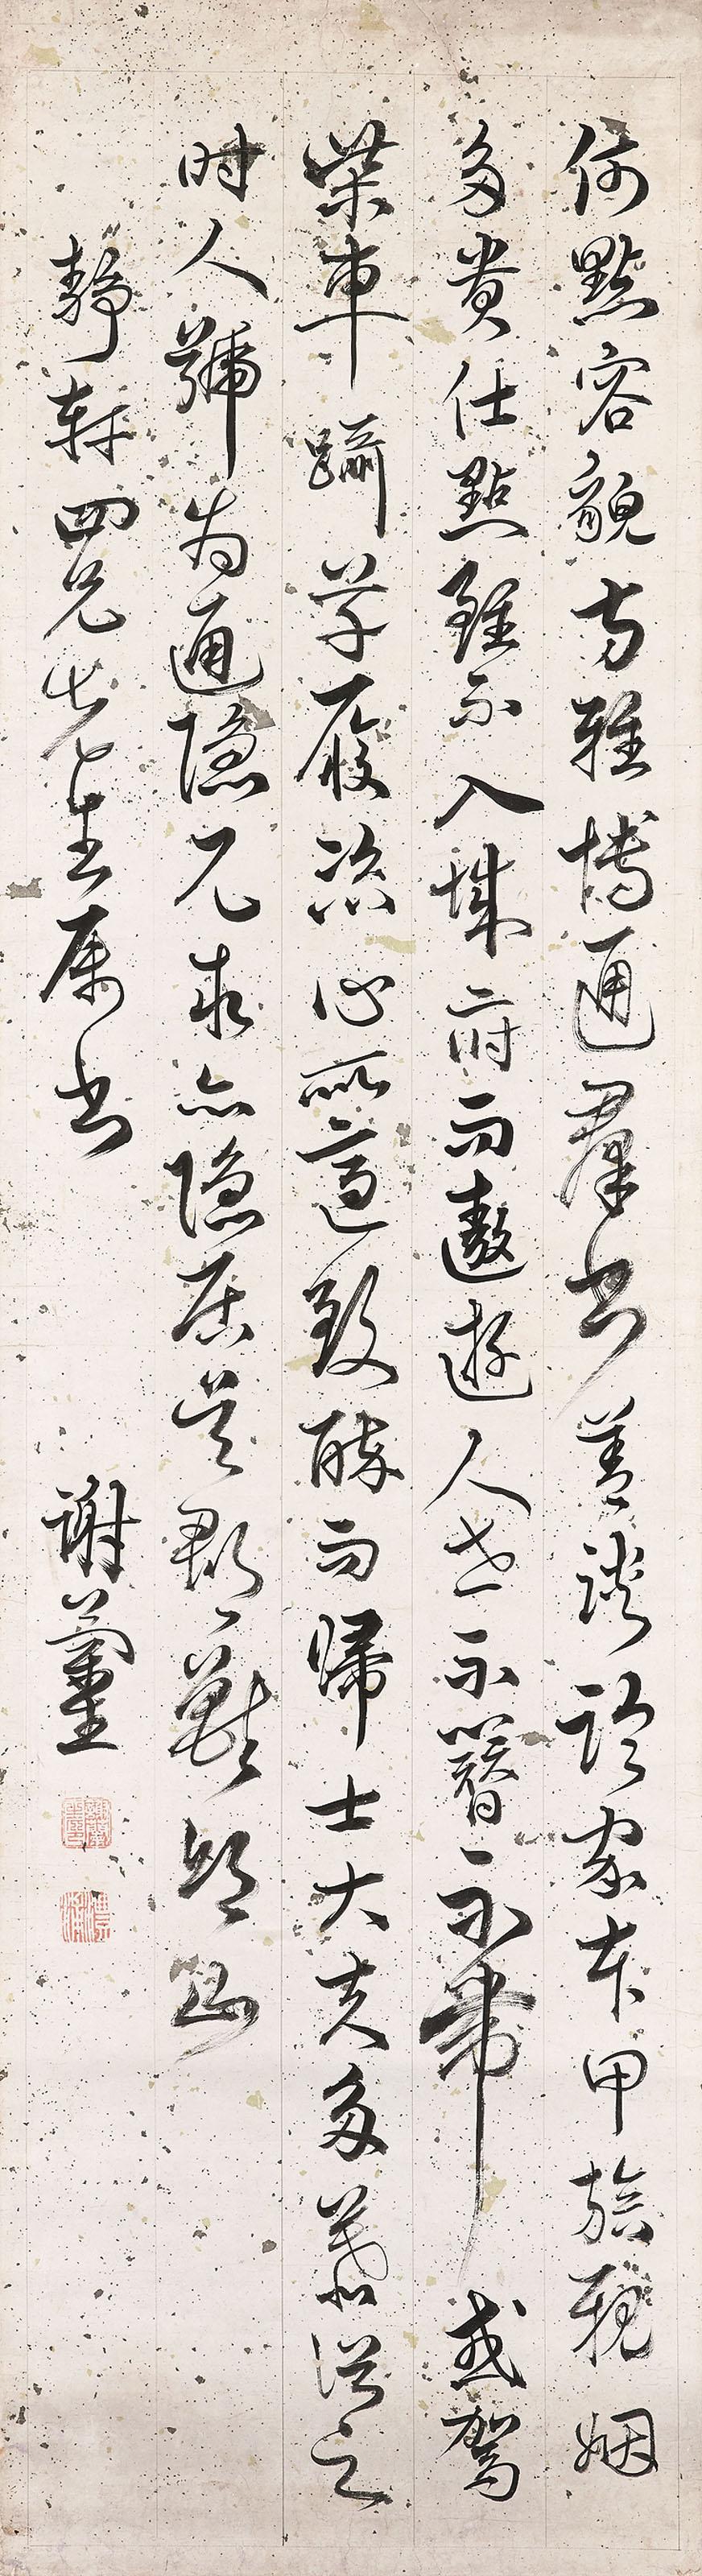 何點容貌方雅博通群书善談論家本甲族親姻
多貴仕點雖不入城府而遨遊人世不簪不帶或駕
柴車躡草屩恣心所適致醉而歸士大夫多慕從之
时人號为通隱兄求亦隱居吴郡獸邱山
静軒四兄先生属书
謝蘭生